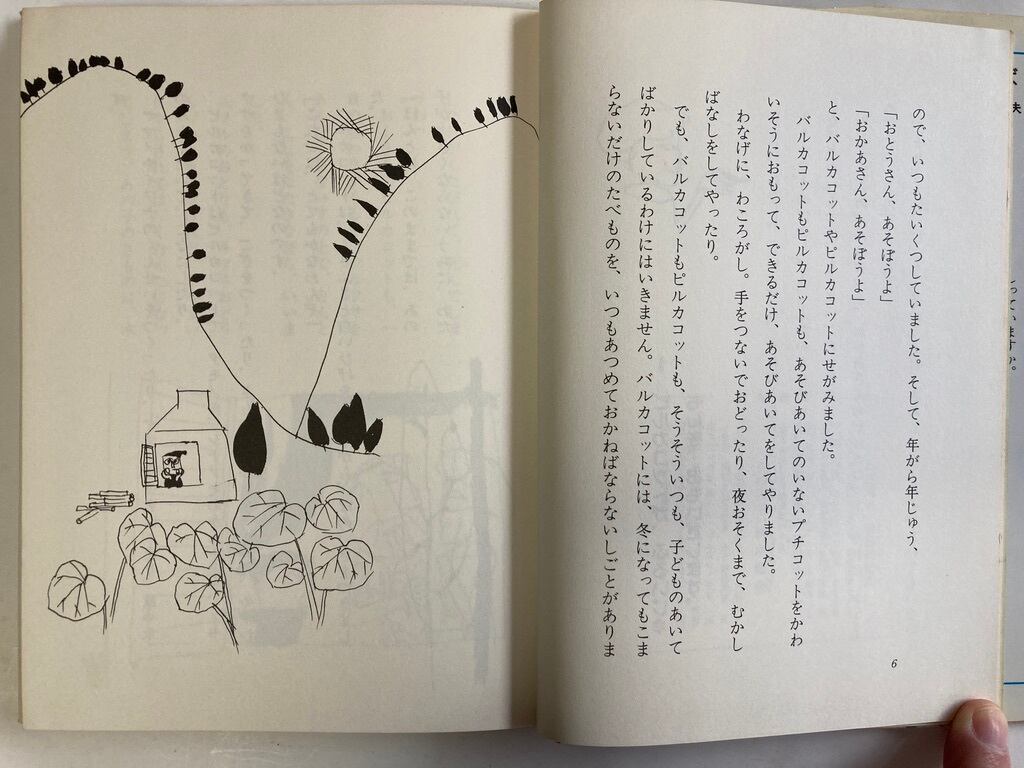 ので、いつもたいくつしていました。そして、年がら年じゅう、
「おとうさん、あそぼうよ」
「おかあさん、あそぼうよ」
と、バルカコットやピルカコットにせがみました。
バルカコットもピルカコットも、あそびあいてのいないプチコットをかわ
いそうにおもって、できるだけ、あそびあいてをしてやりました。
わなげに、わころがし。手をつないでおどったり、夜おそくまで、むかし
ばなしをしてやったり。
でも、バルカコットもピルカコットも、そうそういつも、子どものあいて
ばかりしているわけにはいきません。バルカコットには、冬になってもこま
らないだけのたべものを、いつもあつめておかねばならないしごとがありま
6
っていますか。